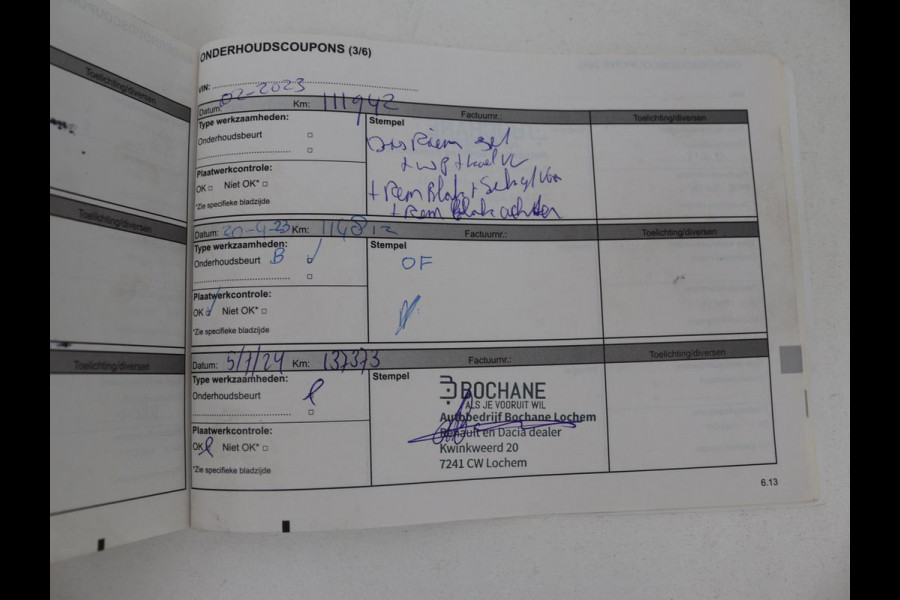 Toelichting/diversen
Toelichting/diversen
Toelichting/diversen
ONDERHOUDSCOUPONS (3/6)
VIN:
Datum: 02-2023 Km: 111942 Factuurnr.: Toelichting/diversen
Type werkzaamheden: Stempel
Onderhoudsbeurt
Dis Riem set
+ WP + koel Vl
Plaatwerkcontrole:
OK Niet OK*
+ Rem Blok + Schijf Voor
*Zie specifieke bladzijde
+ Rem Blok achter
Datum: 20-4-23 Km: 114812 Factuurnr.: Toelichting/diversen
Type werkzaamheden: Stempel
Onderhoudsbeurt B
OF
Plaatwerkcontrole:
OK Niet OK*
*Zie specifieke bladzijde
Datum: 5/1/24 Km: 137373 Factuurnr.: Toelichting/diversen
Type werkzaamheden: Stempel
Onderhoudsbeurt
BOCHANE
ALS JE VOORUIT WIL
Autobedrijf Bochane Lochem
Renault en Dacia dealer
Kwinkweerd 20
7241 CW Lochem
Plaatwerkcontrole:
OK Niet OK*
*Zie specifieke bladzijde
6.13